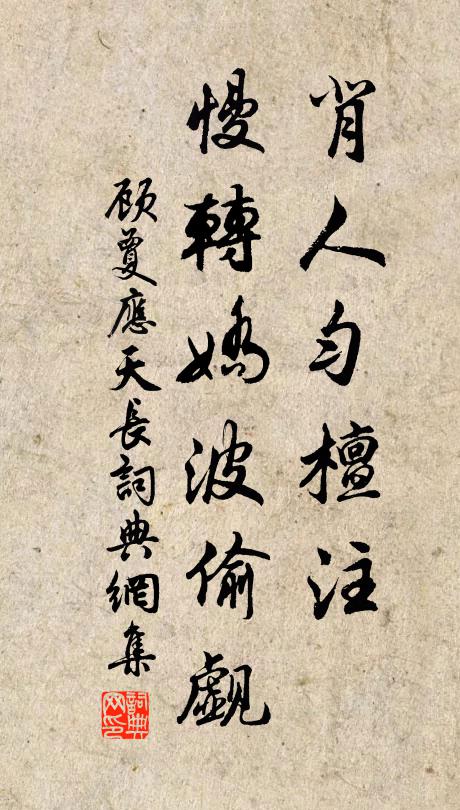 背人匀檀注
慢轉嬌波偷覷
顾夐應天長詞典網集
詞典网印